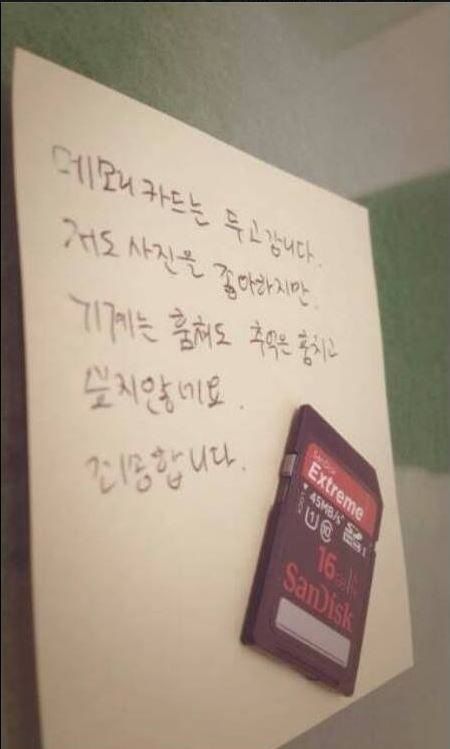 메모리 카드는 두고 갑니다.
저도 사진을 좋아하지만.
기계는 훔쳐도 추억은 훔치고
싶지않네요.
죄송합니다.
SanDisk
Extreme
45MB/s
1 10 I
16 GB
SanDisk